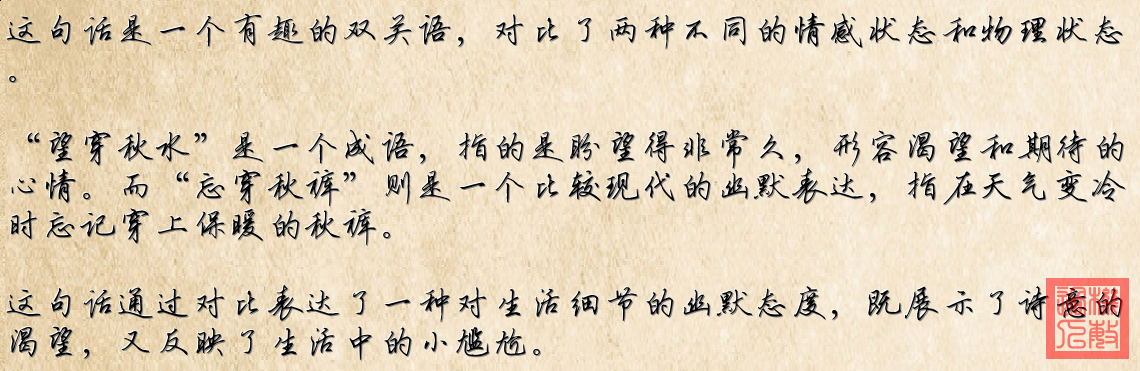 这句话是一个有趣的双关语，对比了两种不同的情感状态和物理状态
。
“望穿秋水”是一个成语，指的是盼望得非常久，形容渴望和期待的
心情。而“忘穿秋裤”则是一个比较现代的幽默表达，指在天气变冷
时忘记穿上保暖的秋裤。
这句话通过对比表达了一种对生活细节的幽默态度，既展示了诗意的
渴望，又反映了生活中的小尴尬。